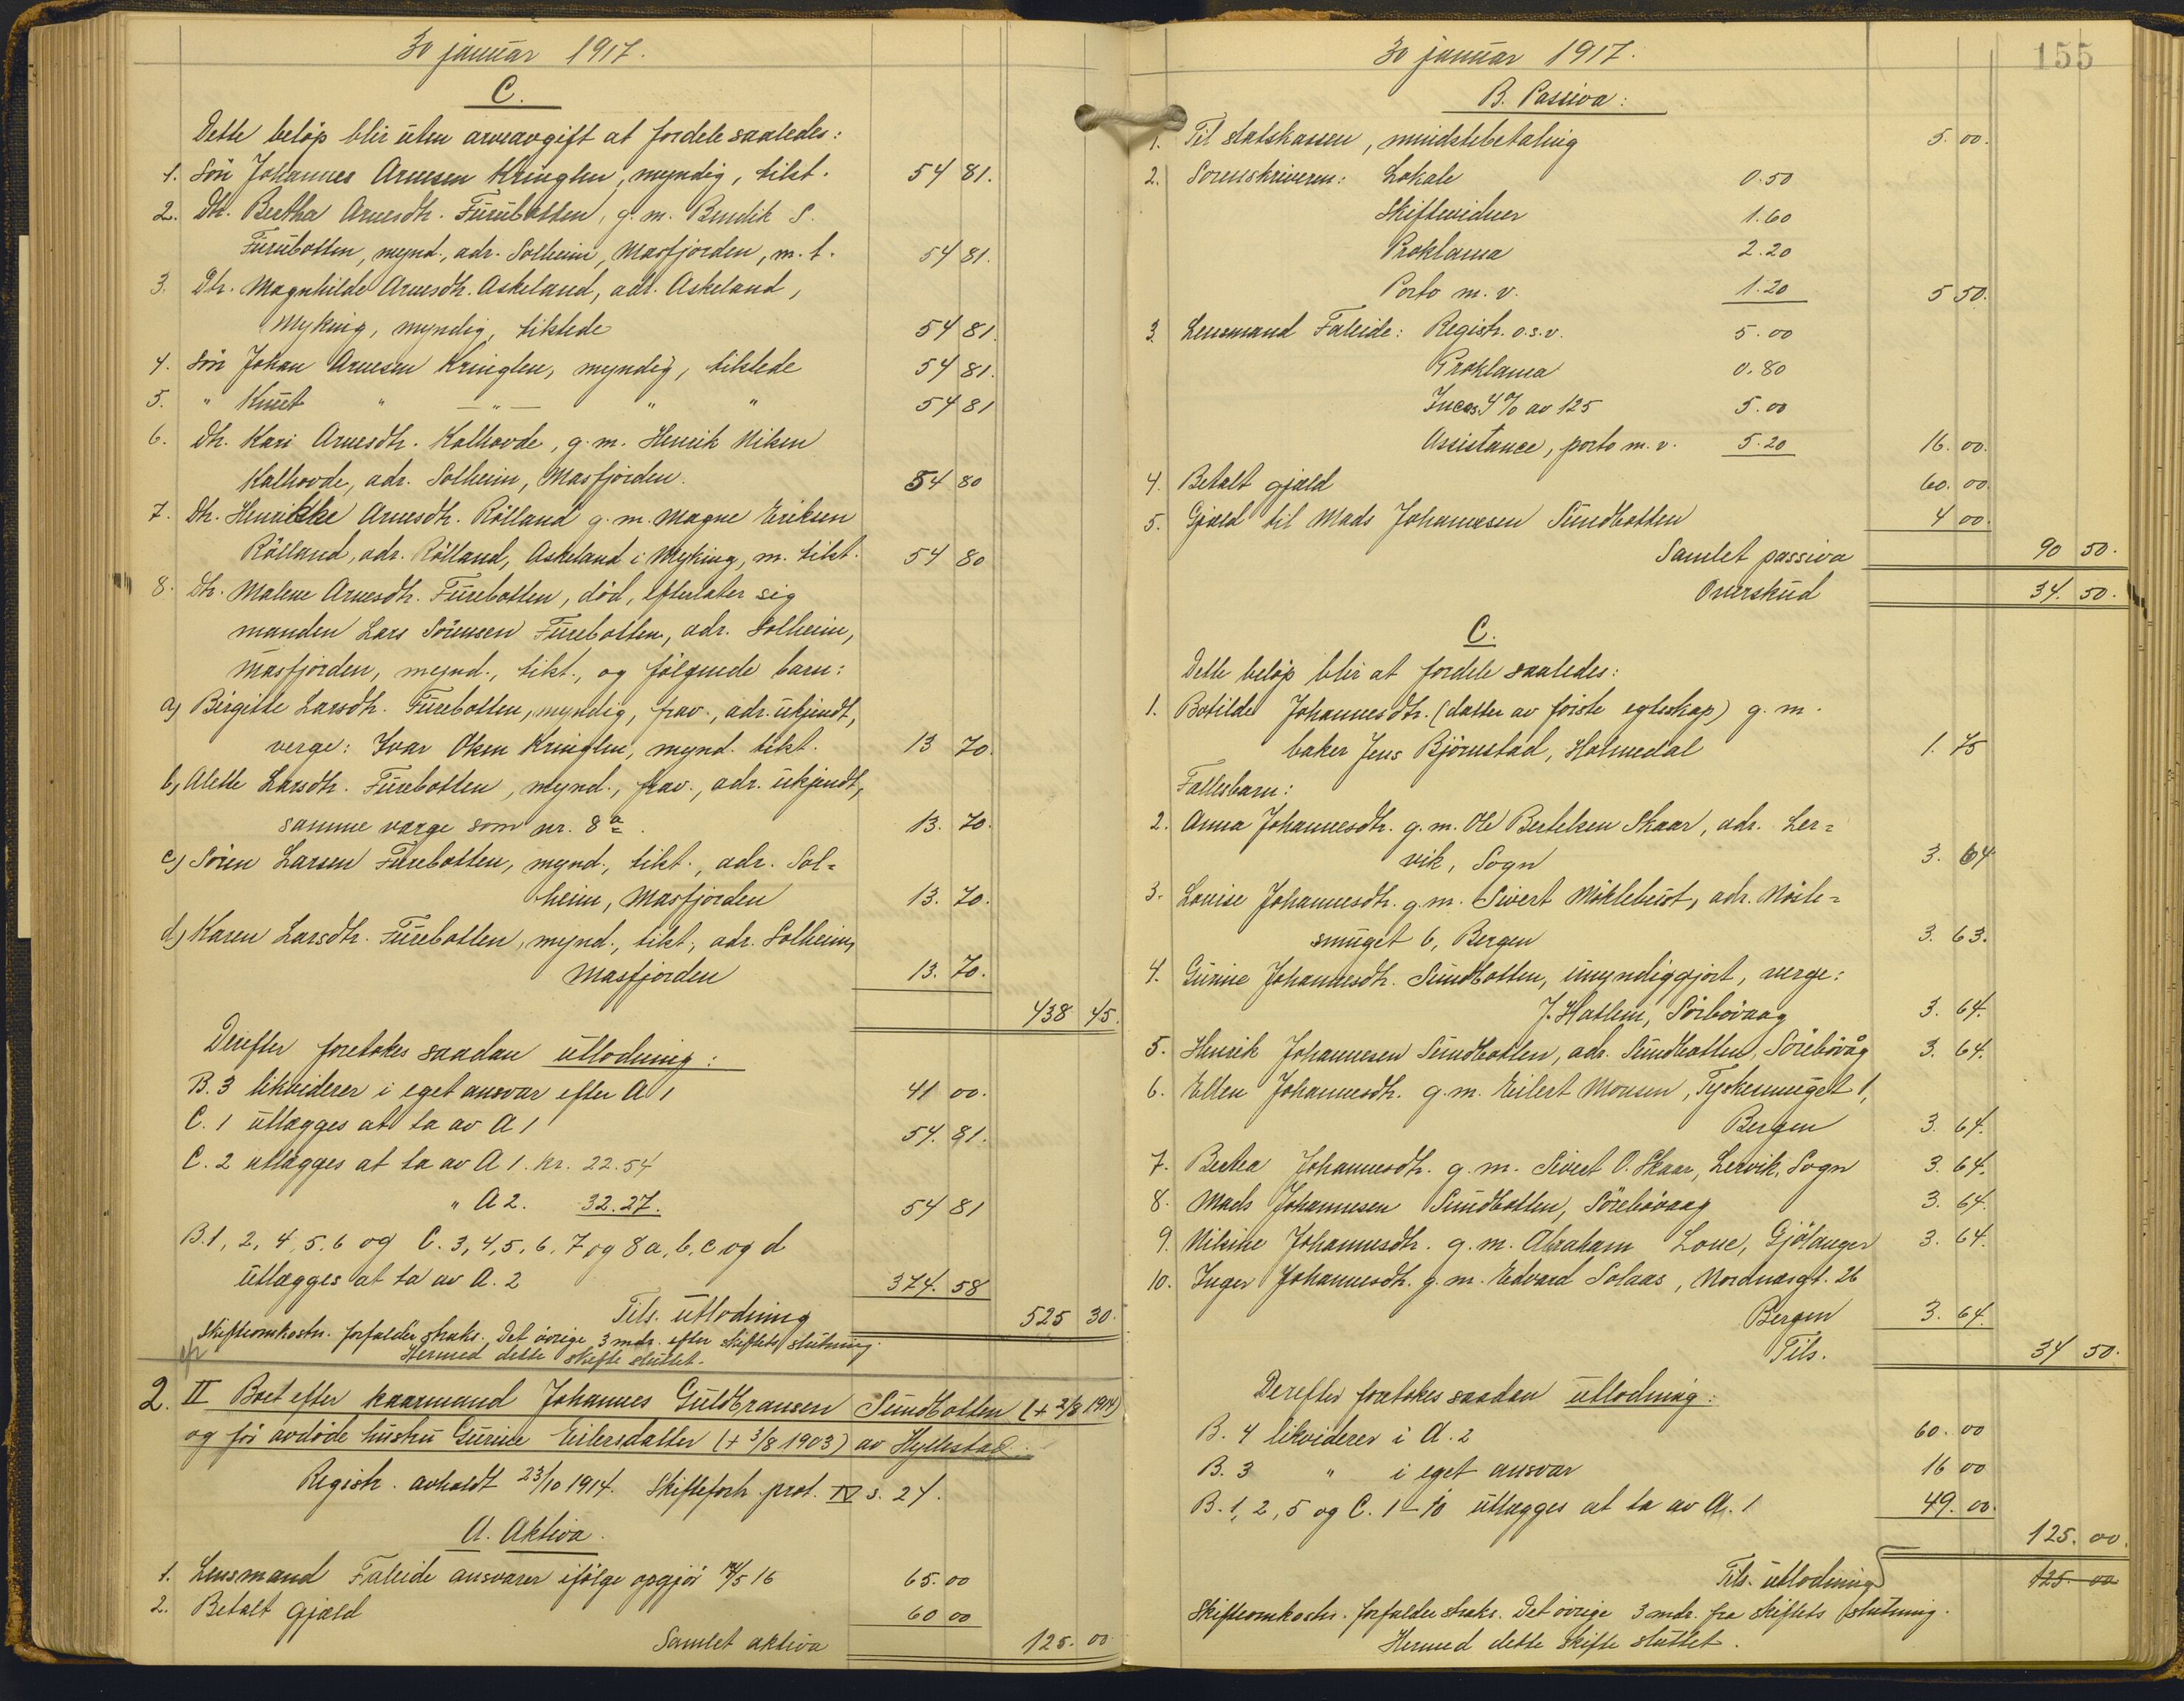 30 januar 1917.
C.
Dette beløp blir uten arveavgift at fordele saaledes:
1. Søn Johannes Arnesen Kringlen, myndig, tilst. 54 81.
2. Dtr. Bertha Arnesdtr. Furubotten, g. m. Bendik S.
Furubotten, mynd., adr. Solheim, Masfjorden, m. t. 54 81.
3. Dtr. Magnhilde Arnesdtr. Askeland, adr. Askeland,
Myking, myndig, tilstede 54 81.
4. Søn Johan Arnesen Kringlen, myndig, tilstede 54 81.
5. " Knut " — " — " " 54 81
6. Dtr. Kari Arnesdtr. Kalhovde, g. m. Henrik Nilsen
Kalhovde, adr. Solheim, Masfjorden. 54 80
7. Dtr. Henrikke Arnesdtr. Rölland g. m. Magne Eriksen
Rölland, adr. Rölland, Askeland i Myking, m. tilst. 54 80
8. Dtr. Malene Arnesdtr. Furebotten, död, efterlater sig
manden Lars Sörensen Furebotten, adr. Solheim,
Masfjorden, mynd., tilst., og fölgende barn:
a) Birgitte Larsdtr. Furebotten, myndig, frav., adr. ukjendt,
verge: Ivar Olsen Kringlen, mynd. tilst. 13 70.
b) Alette Larsdtr. Furebotten, mynd., frav., adr. ukjendt,
samme verge som nr. 8 a. 13. 70.
c) Sören Larsen Furebotten, mynd., tilst., adr. Sol=
heim, Masfjorden 13. 70.
d) Karen Larsdtr. Furebotten, mynd., tilst., adr. Solheim,
Masfjorden 13. 70.
438 45.
Derefter foretokes saadan utlodning:
B. 3 likviderer i eget ansvar efter A 1 41 00.
C. 1 utlægges at ta av A 1 54. 81.
C. 2 utlægges at ta av A 1. kr. 22.54
" A 2. 32.27. 54 81
B. 1, 2, 4, 5. 6 og C. 3, 4, 5, 6, 7 og 8 a, b, c og d
utlægges at ta av A. 2 374. 58
Tils. utlodning 525 30.
Skifteomkostn. forfalder straks. Det övrige 3 mdr. efter skiftets slutning.
Hermed dette skifte sluttet.
2. II Boet efter kaarmand Johannes Guldbransen Sundbotten (+ 2/8 1914)
og för avdöde hustru Gurine Eilersdatter (+ 3/8 1903) av Hyllestad.
Registr. avholdt 23/10 1914. Skifteforh. prot. IV s. 24.
A. Aktiva.
1. Lensmand Faleide ansvarer ifölge opgjör 14/5 16 65. 00
2. Betalt gjæld 60 00
Samlet aktiva 125. 00
30 januar 1917.
155
B. Passiva:
1. Til statskassen, mindstebetaling 5. 00.
2. Sorenskriveren: Lokale 0.50
Skiftevidner 1.60
Proklama 2.20
Porto m. v. 1.20 5 50.
3. Lensmand Faleide: Registr. o.s.v. 5.00
Proklama 0.80
Incas. 4% av 125 5.00
Assistance, porto m. v. 5.20 16. 00.
4. Betalt gjæld 60. 00.
5. Gjæld til Mads Johannesen Sundbotten 4 00.
Samlet passiva 90 50.
Overskud 34. 50.
C.
Dette beløp blir at fordele saaledes:
1. Botilde Johannesdtr. (datter av förste egteskap) g. m.
baker Jens Björnestad, Holmedal 1. 75
Fællesbarn:
2. Anna Johannesdtr. g. m. Ole Bertelsen Skaar, adr. Ler=
vik, Sogn 3. 64
3. Louise Johannesdtr. g. m. Sivert Möklebust, adr. Nöste=
smuget 6, Bergen 3. 63.
4. Gurine Johannesdtr. Sundbotten, umyndiggjort, verge:
J. Hatlem, Sörbövaag 3. 64.
5. Henrik Johannesen Sundbotten, adr. Sundbotten, Sörebövåg 3. 64.
6. Ellen Johannesdtr. g. m. Eilert Monsen, Tyskesmuget 1,
Bergen 3. 64.
7. Bertea Johannesdtr. g. m. Sivert O. Skaar, Lervik, Sogn 3. 64.
8. Mads Johannesen Sundbotten, Sörebövaag 3. 64.
9. Nilsine Johannesdtr. g. m. Abraham Lone, Gjölanger 3. 64.
10. Inger Johannesdtr. g. m. Edvard Solaas, Nordnæsgt. 26
Bergen 3. 64.
Tils. 34 50.
Derefter foretokes saadan utlodning:
B. 4 likviderer i A. 2 60. 00
B. 3 " i eget ansvar 16 00
B. 1, 2, 5 og C. 1–10 utlægges at ta av A. 1 49. 00.
125. 00.
Tils. utlodning 125 00
Skifteomkostn. forfalder straks. Det övrige 3 mdr. fra skiftets slutning.
Hermed dette skifte sluttet.